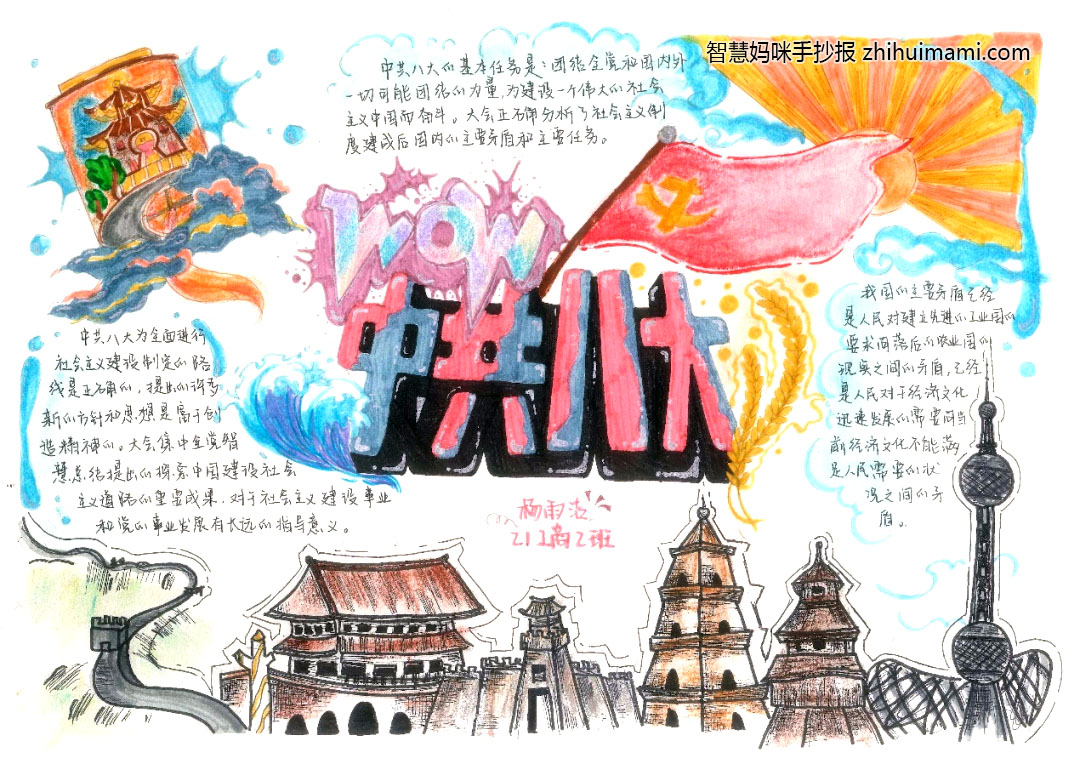 智慧妈咪手抄报 zhihuimami.com
中共八大的基本任务是：团结全党和国内外
一切可能团结的力量，为建设一个伟大的社会
主义中国而奋斗。大会正确分析了社会主义制
度建成后国内的主要矛盾和主要任务。
WOW
中共八大
中共八大为全面进行
社会主义建设制定的路
线是正确的，提出的许多
新的方针和思想是富于创
造精神的。大会集中全党智
慧总结提出的探索中国建设社会
主义道路的重要成果，对于社会主义建设事业
和党的事业发展有长远的指导意义。
我国的主要矛盾已经
是人民对建立先进的工业国的
要求同落后的农业国的
现实之间的矛盾，已经
是人民对于经济文化
迅速发展的需要同当
前经济文化不能满
足人民需要的状
况之间的矛
盾。
杨雨
21 2班